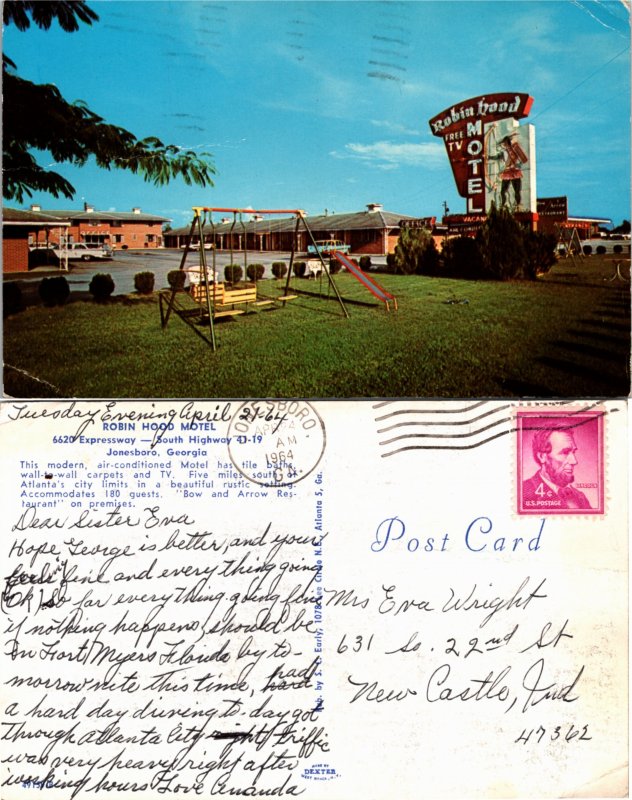 Robin Hood
FREE
TV
MOTEL
VACANCY
OFFICE
Tuesday Evening April 21-64
ROBIN HOOD MOTEL
6620 Expressway — South Highway 41-19
Jonesboro, Georgia
This modern, air-conditioned Motel has tile baths,
wall-to-wall carpets and TV. Five miles south of
Atlanta's city limits in a beautiful rustic setting.
Accommodates 180 guests. "Bow and Arrow Res-
taurant" on premises.
JONESBORO
APR
AM
1964
GA.
LINCOLN
4¢
U.S. POSTAGE
Post Card
Dear Sister Eva
Hope George is better, and your
feeling fine and everything going
(Ok) So far everything going fine
if nothing happens, should be
in Fort Myers Florida by to-
morrow nite this time, had
a hard day driving to-day got
through Atlanta City traffic
was very heavy right after
working hours Love Amanda
Mrs Eva Wright
631 So. 22nd St
New Castle, Ind
47362
Pub. by S. C. Early, 1078 Lee Circle N.W., Atlanta 5, Ga.
MADE BY
DEXTER
WEST NYACK, N.Y.